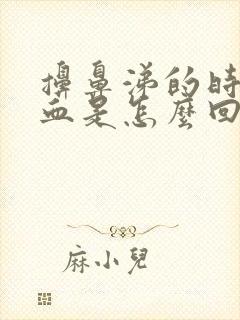 擤鼻涕的時
血是怎麼回
麻小兒